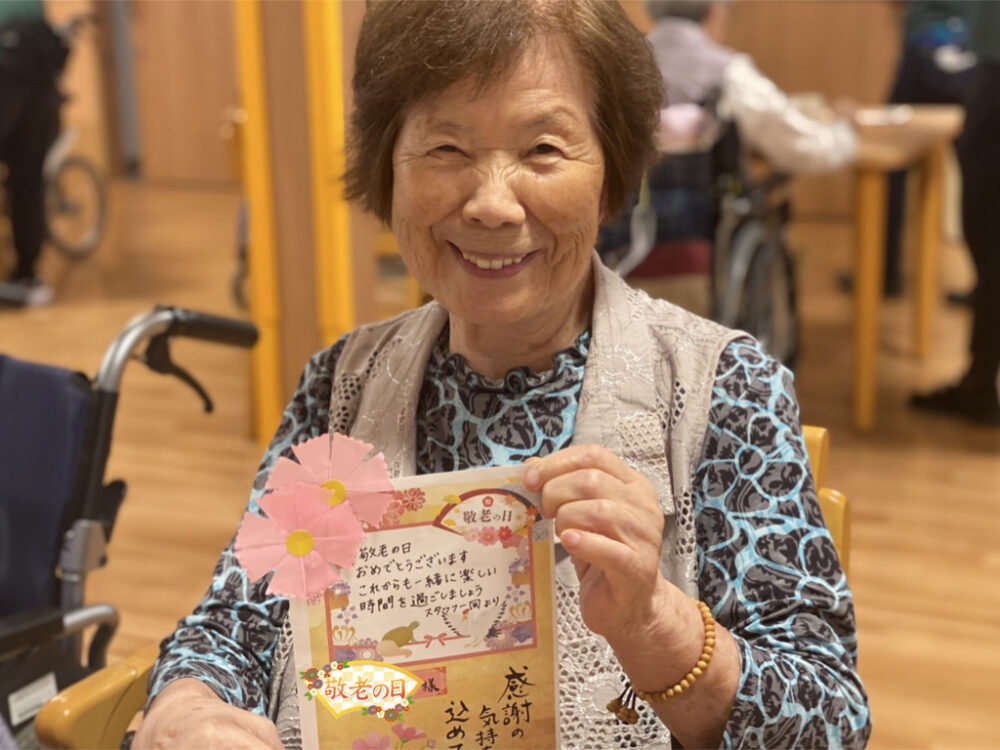 祝
敬老の日
敬老の日
おめでとうございます
これからも一緒に楽しい
時間を過ごしましょう
スタッフ一同より
敬老の日
様
感謝の
気持
込め